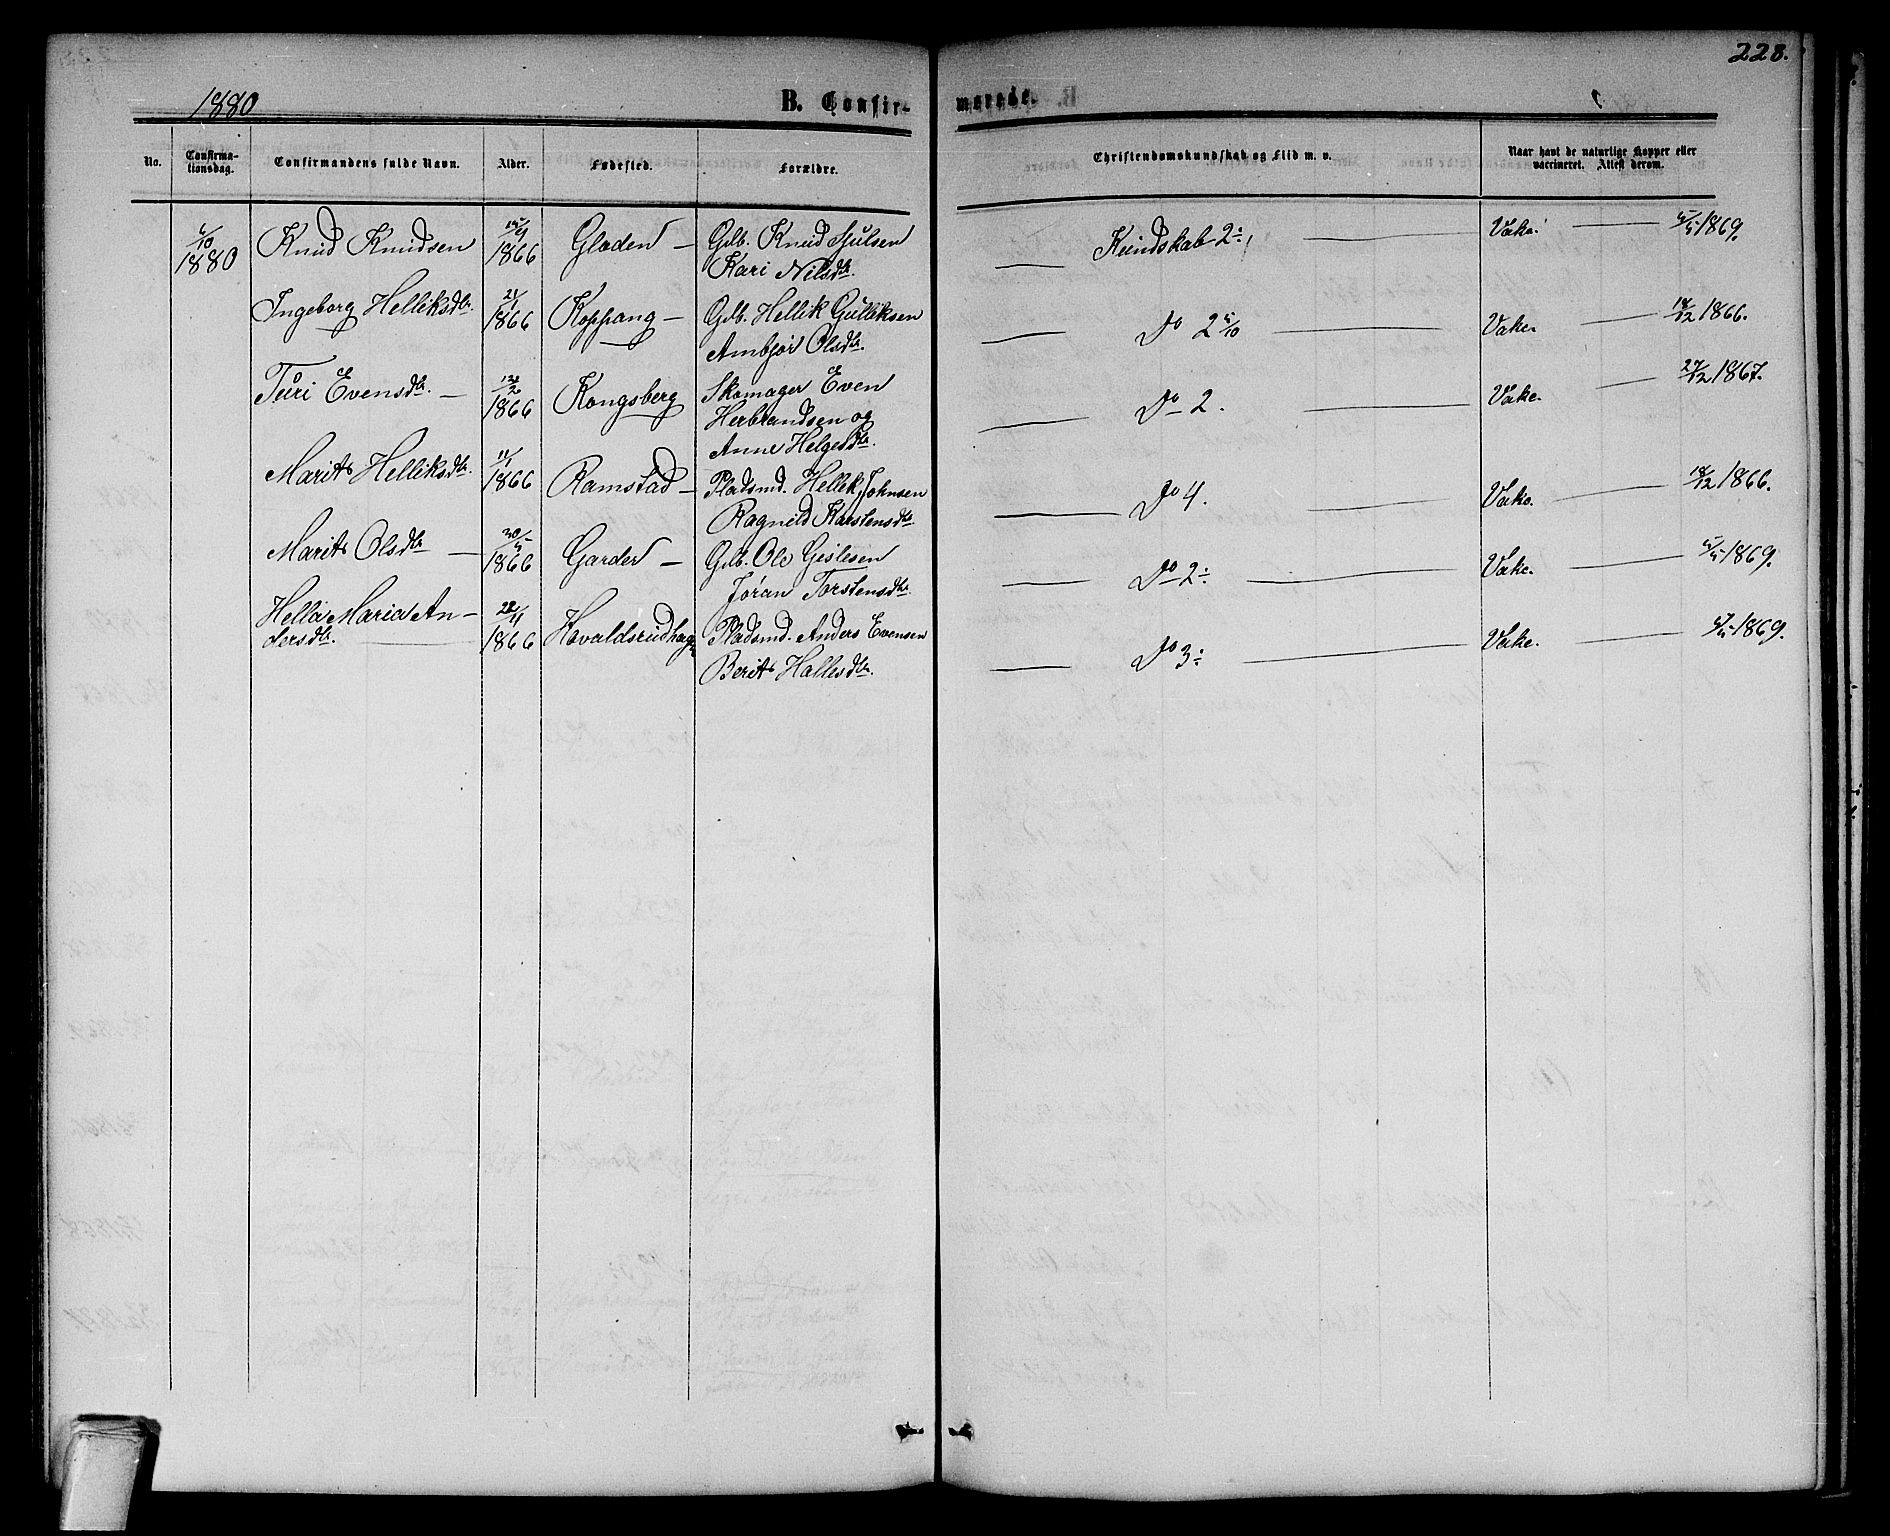 228.
1880
B. Confir-
merede.
No.
Confirma-
tionsdag.
Confirmandens fulde Navn.
Alder.
Fødested.
Forældre.
Christendomskundskab og Flid m. v.
Naar havt de naturlige Kopper eller
vaccineret. Attest derom.
1880
Knud Knudsen
1866
Gloden —
Gdb. Knud Sjulsen
Kari Nilsdtr.
Kundskab 2÷
Vake.
1869.
Ingeborg Helliksdtr.
21/1 1866
Koppang —
Gdb. Hellik Gulliksen
Ambjør Olsdtr.
Do 2
Vake.
18/12 1866.
Turi Evensdtr. —
1866
Kongsberg
Skomager Even
Herbrandsen og
Anne Helgesdtr.
Do 2.
Vake.
27/12 1867.
Marit Helliksdtr.
11/1 1866
Ramstad —
Pladsmd. Hellek Johnsen
Ragnild Karstensdtr.
Do 4.
Vake.
18/12 1866.
Marit Olsdtr —
30/5 1866
Garder —
Gdb. Ole Gislesen
Jøran Torstensdtr.
Do 2÷
Vake.
1869.
Hella Maria An-
dersdtr.
22/4 1866
Havaldsrudhagn
Pladsmd. Anders Evensen
Berit Hallesdtr.
Do 3÷
Vake.
1869.